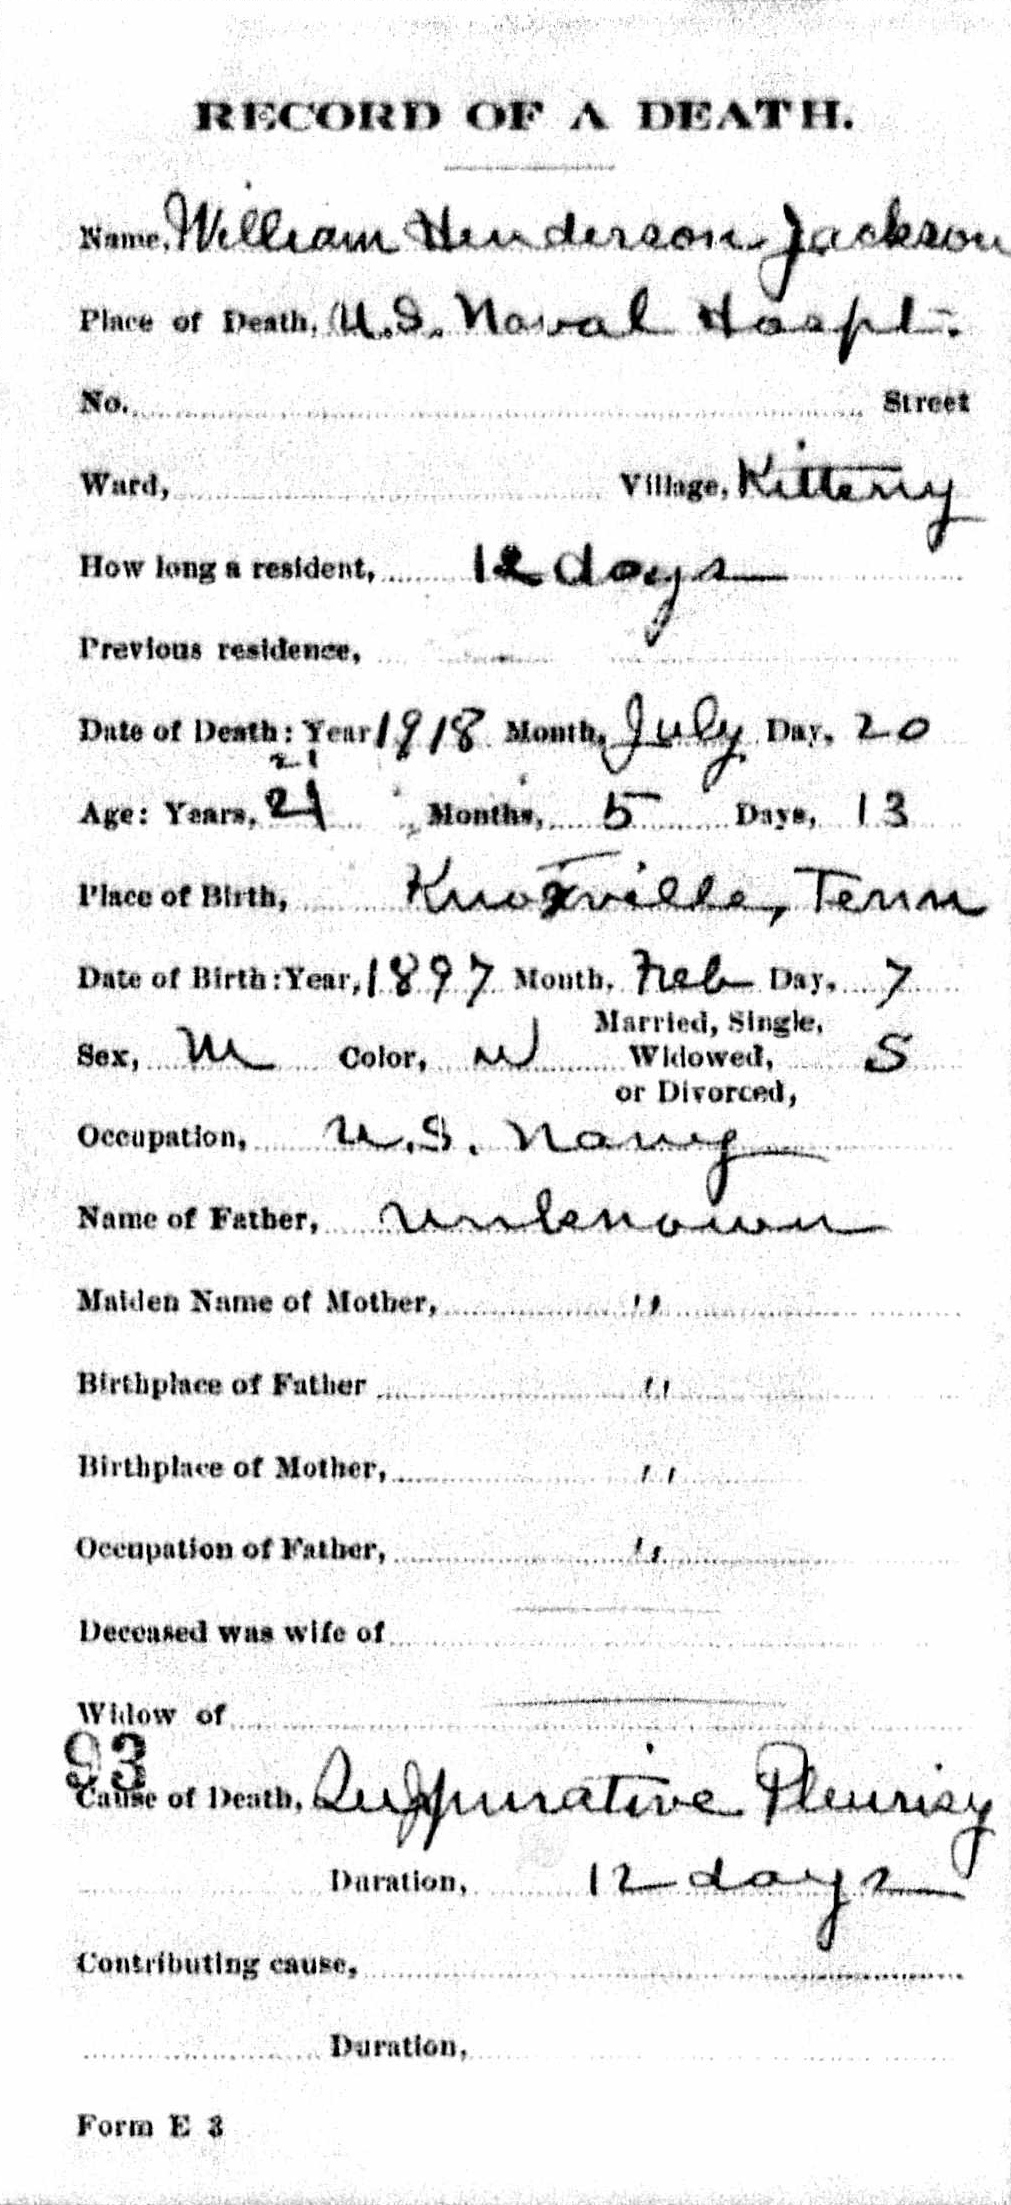 RECORD OF A DEATH.
Name, William Henderson Jackson
Place of Death, U.S. Naval Hospt.
No. Street
Ward, Village, Kittery
How long a resident, 12 days
Previous residence,
Date of Death: Year 1918 Month, July Day, 20
21
Age: Years, 21 Months, 5 Days, 13
Place of Birth, Knoxville, Tenn
Date of Birth: Year, 1897 Month, Feb Day, 7
Married, Single,
Sex, M Color, W Widowed, S
or Divorced,
Occupation, U.S. Navy
Name of Father, Unknown
Maiden Name of Mother, "
Birthplace of Father "
Birthplace of Mother, "
Occupation of Father, "
Deceased was wife of
Widow of
93
Cause of Death, Suppurative Pleurisy
Duration, 12 days
Contributing cause,
Duration,
Form E 3